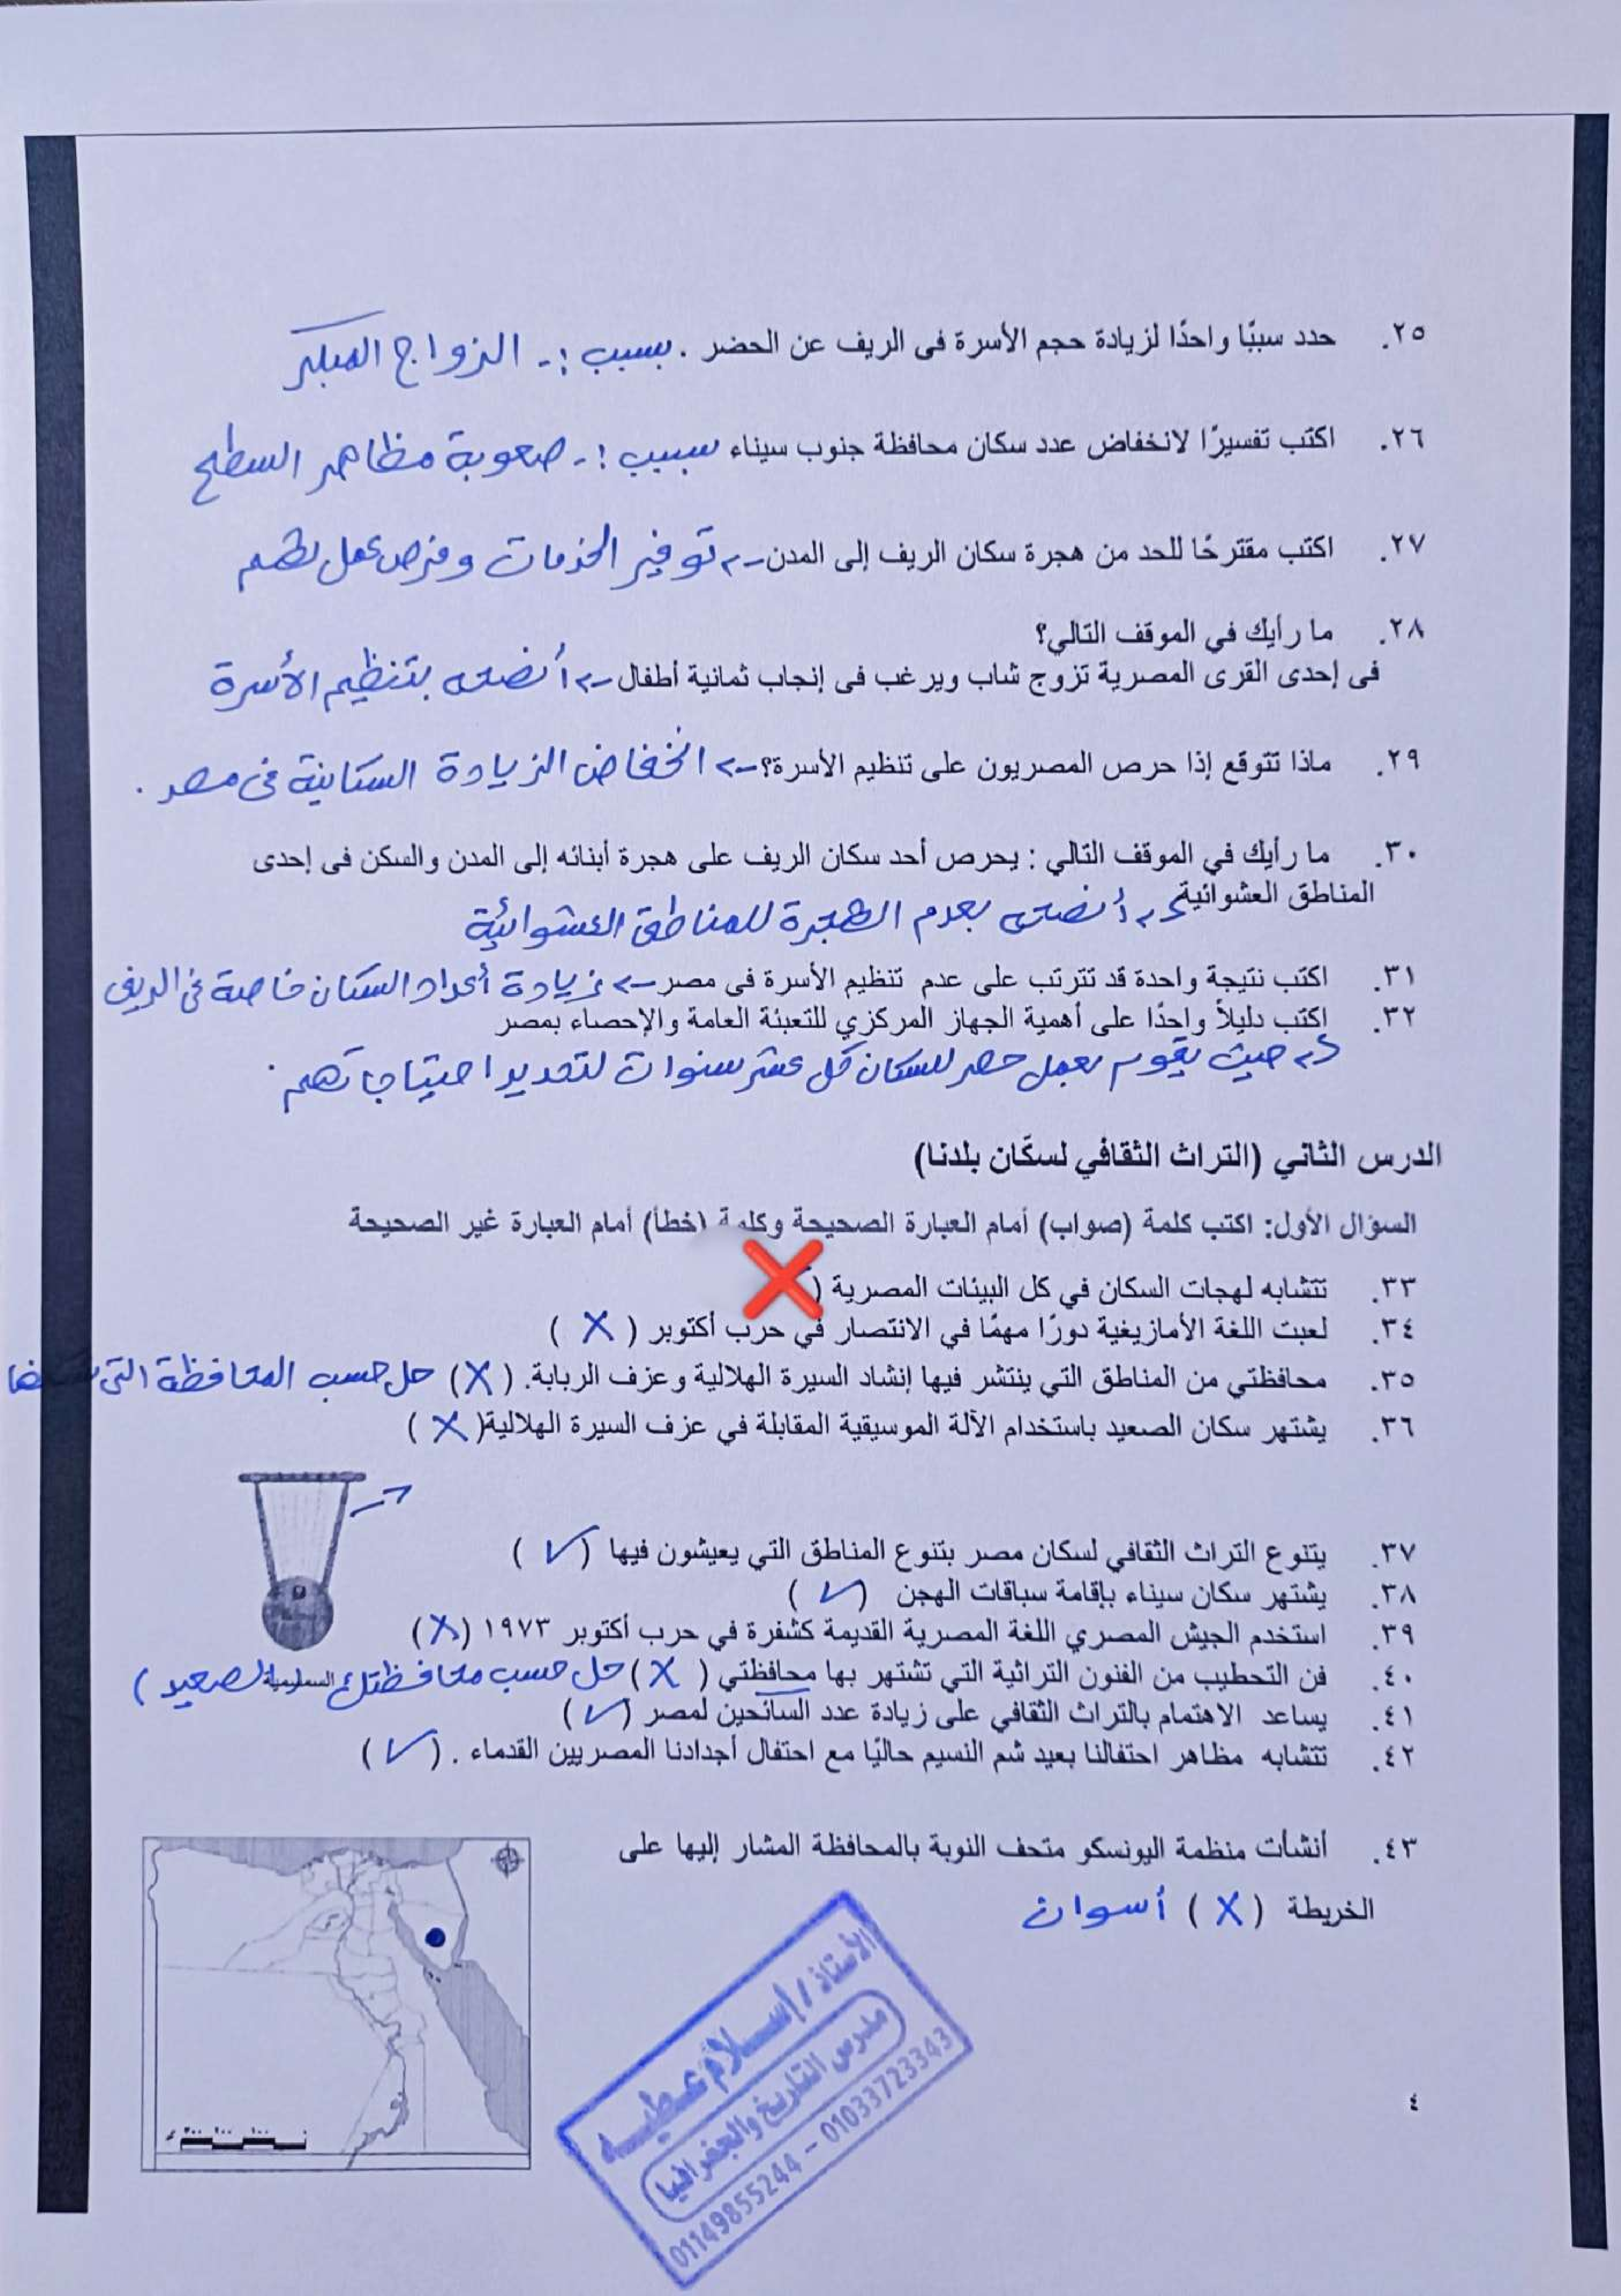 ٢٥. حدد سببًا واحدًا لزيادة حجم الأسرة فى الريف عن الحضر . بسبب :- الزواج المبكر
٢٦. اكتب تفسيرًا لانخفاض عدد سكان محافظة جنوب سيناء بسبب :- صعوبة مظاهر السطح
٢٧. اكتب مقترحًا للحد من هجرة سكان الريف إلى المدن -> توفير الخدمات وفرص عمل لهم
٢٨. ما رأيك في الموقف التالي؟
فى إحدى القرى المصرية تزوج شاب ويرغب فى إنجاب ثمانية أطفال -> أنصحه بتنظيم الأسرة
٢٩. ماذا تتوقع إذا حرص المصريون على تنظيم الأسرة؟ -> انخفاض الزيادة السكانية فى مصر .
٣٠. ما رأيك في الموقف التالي : يحرص أحد سكان الريف على هجرة أبنائه إلى المدن والسكن فى إحدى
المناطق العشوائية -> أنصحه بعدم الهجرة للمناطق العشوائية
٣١. اكتب نتيجة واحدة قد تترتب على عدم تنظيم الأسرة فى مصر -> زيادة أعداد السكان خاصة فى الريف
٣٢. اكتب دليلاً واحدًا على أهمية الجهاز المركزي للتعبئة العامة والإحصاء بمصر
-> حيث يقوم بعمل حصر للسكان كل عشر سنوات لتحديد احتياجاتهم .
الدرس الثاني (التراث الثقافي لسكّان بلدنا)
السؤال الأول: اكتب كلمة (صواب) أمام العبارة الصحيحة وكلمة (خطأ) أمام العبارة غير الصحيحة
٣٣. تتشابه لهجات السكان في كل البيئات المصرية ( ❌
٣٤. لعبت اللغة الأمازيغية دورًا مهمًا في الانتصار في حرب أكتوبر ( X )
٣٥. محافظتي من المناطق التي ينتشر فيها إنشاد السيرة الهلالية وعزف الربابة. ( X ) حل حسب المحافظة التى
٣٦. يشتهر سكان الصعيد باستخدام الآلة الموسيقية المقابلة في عزف السيرة الهلالية( X )
٣٧. يتنوع التراث الثقافي لسكان مصر بتنوع المناطق التي يعيشون فيها ( ✓ )
٣٨. يشتهر سكان سيناء بإقامة سباقات الهجن ( ✓ )
٣٩. استخدم الجيش المصري اللغة المصرية القديمة كشفرة في حرب أكتوبر ١٩٧٣ ( X )
٤٠. فن التحطيب من الفنون التراثية التي تشتهر بها محافظتي ( X ) حل حسب محافظتك الصعيد )
٤١. يساعد الاهتمام بالتراث الثقافي على زيادة عدد السائحين لمصر ( ✓ )
٤٢. تتشابه مظاهر احتفالنا بعيد شم النسيم حاليًا مع احتفال أجدادنا المصريين القدماء . ( ✓ )
٤٣. أنشأت منظمة اليونسكو متحف النوبة بالمحافظة المشار إليها على
الخريطة ( X ) أسوان
الأستاذ / إسلام عطيه
مدرس التاريخ والجغرافيا
01149855244 - 01033723343
٤